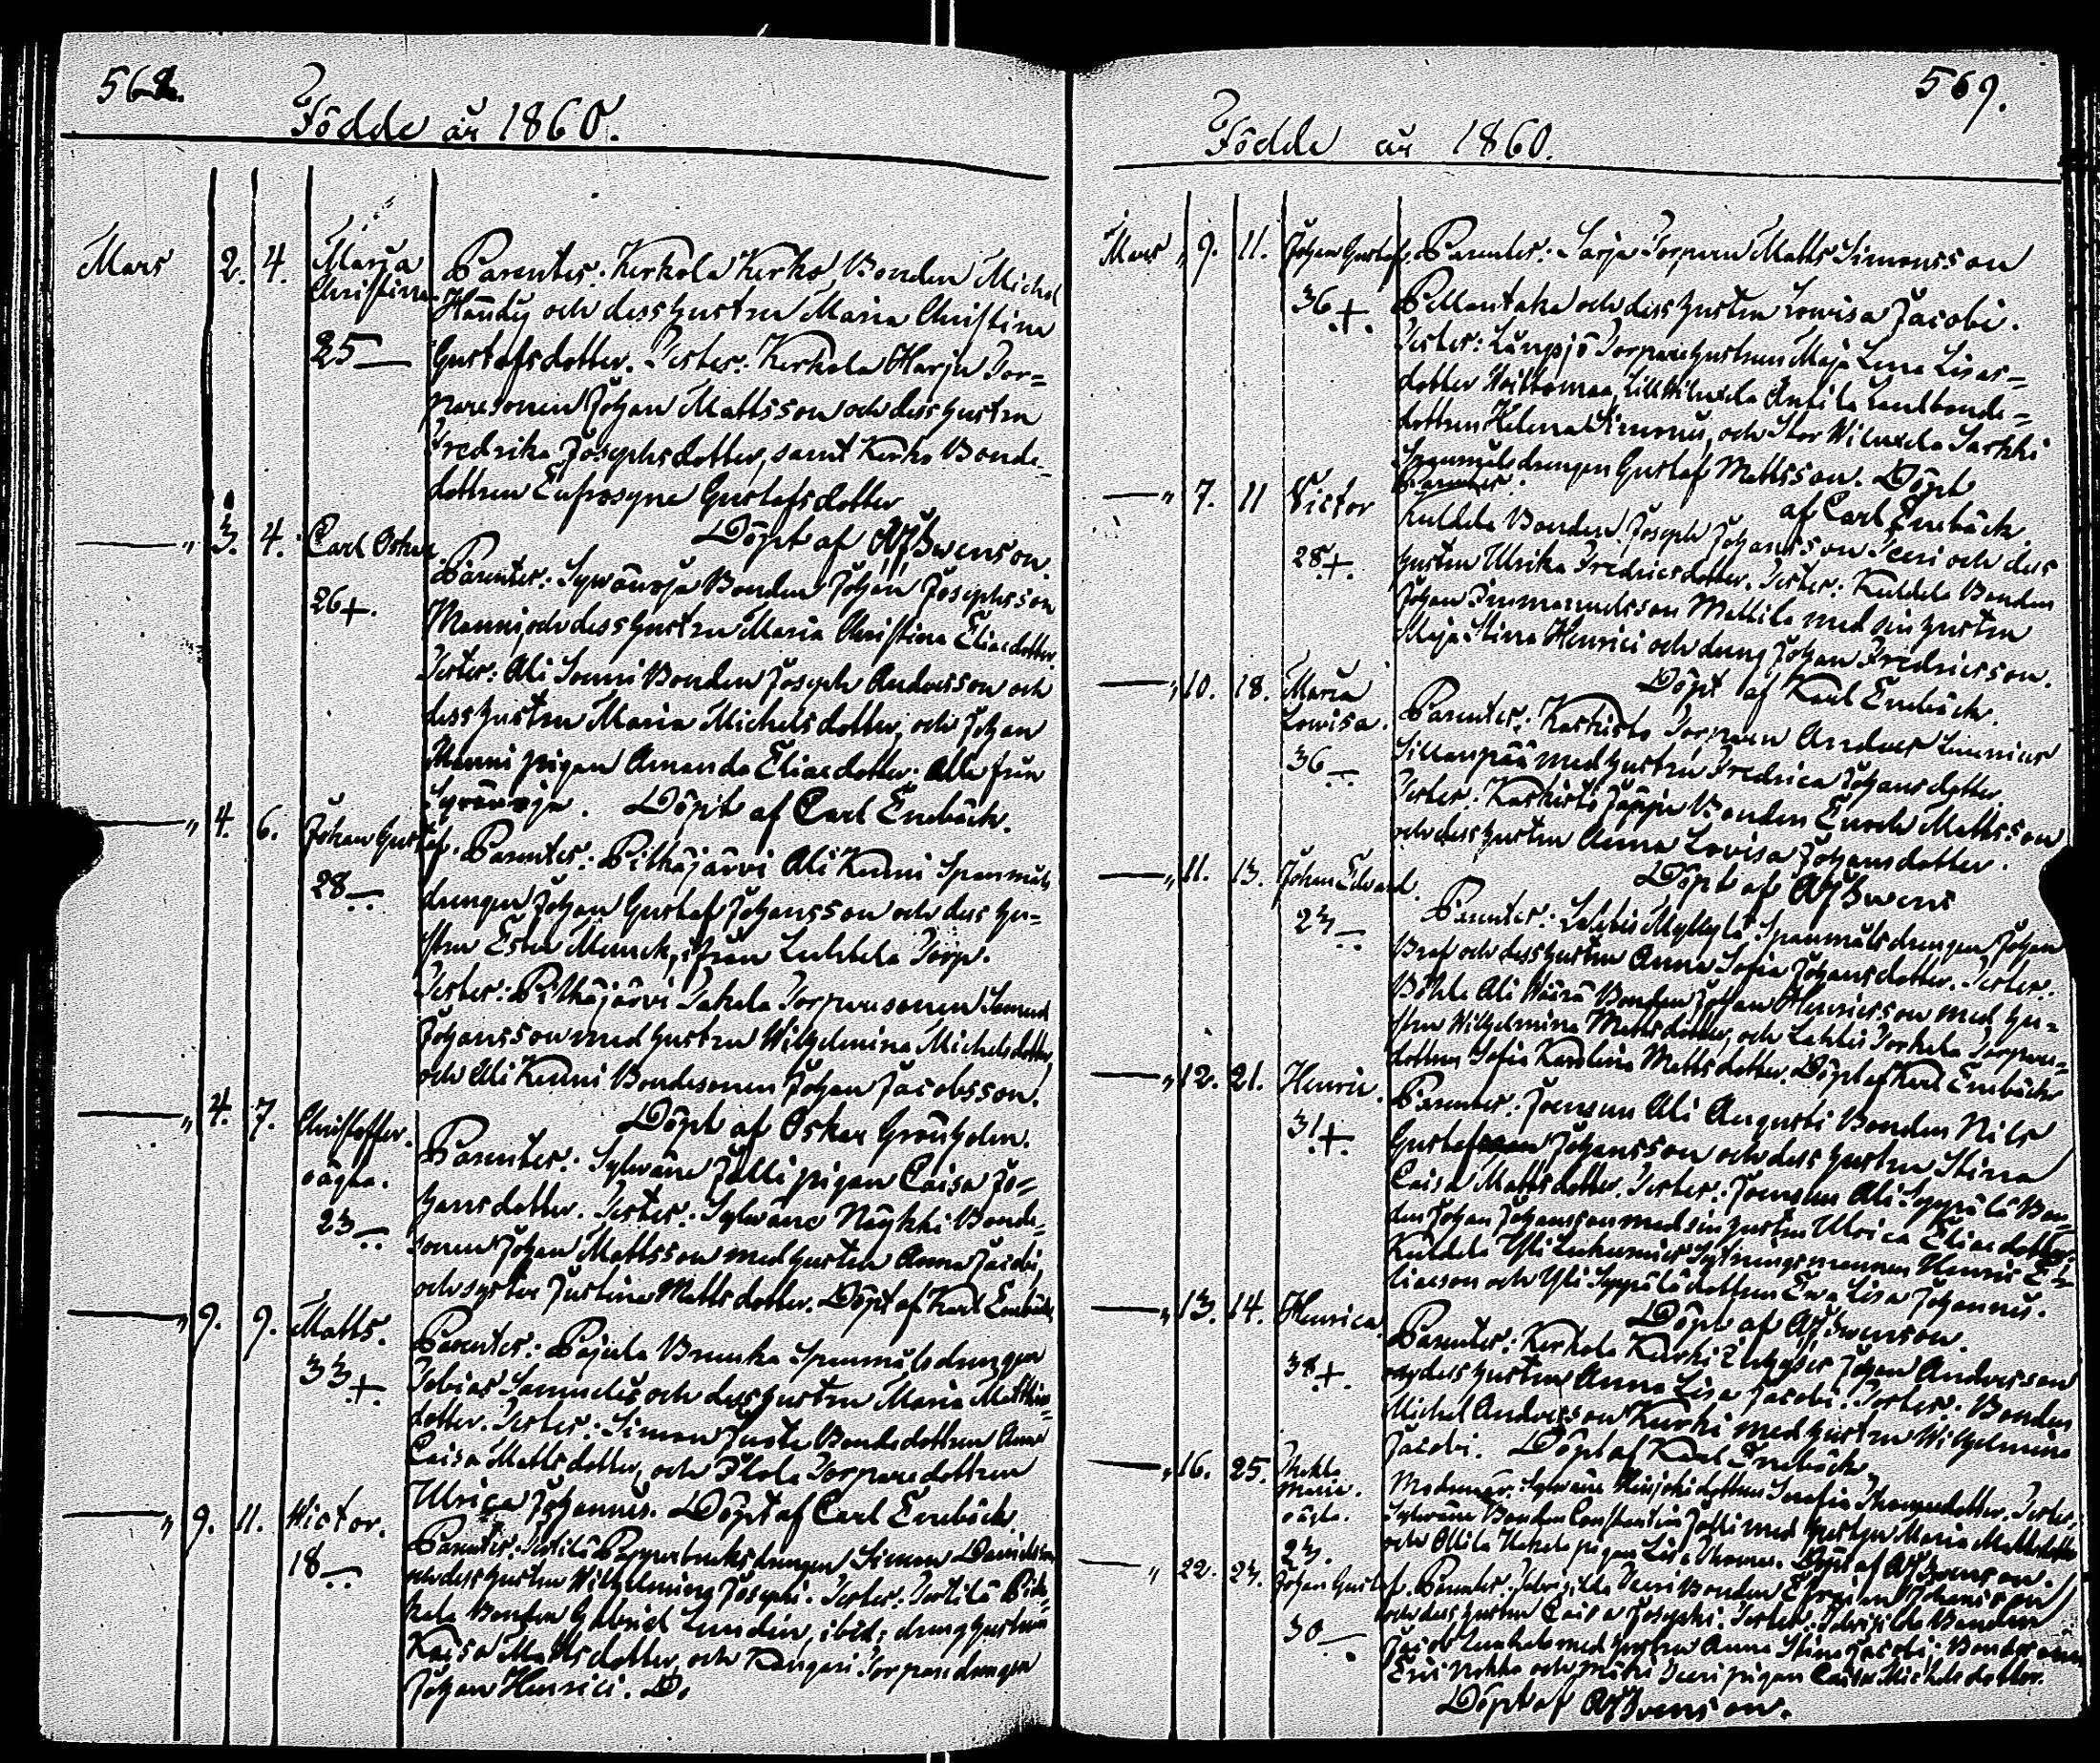 568.
Födde år 1860.
Mars 2. 4. Maria Christina
25—
Parentes: Kerkola Kerko Bonden Michel
Handy och dess hustru Maria Christina
Gustafsdotter. Testes: Kerkola Harju Tor=
paresonen Johan Mattsson och dess hustru
Fredrika Josephsdotter, samt Kerko Bonde=
dottren Eufrosyne Gustafsdotter
Döpt af Swenson.
—„ 3. 4. Carl Oskar
26+.
Parentes: Sywänoja Bonden Johan Josephsson
Manni och dess hustru Maria Christina Eliaedotter.
Testes: Ali Sonni Bonden Joseph Andersson och
dess hustru Maria Michelsdotter, och Johan
Manni pigan Amanda Eliaedotter. Alla från
Sywänoja. Döpt af Carl Enebäck.
—„ 4. 6. Johan Gustaf.
28—
Parentes: Pitkäjärvi Ali Kenni Spanmåls
drengen Johan Gustaf Johansson och dess hu=
stru Ester Munck, ifrån Torp.
Testes: Pitkäjärvi Takala Torparesonen Samuel
Johansson med hustru Wilhelmina Michelsdotter
och Ali Kenni Bondesonen Johan Jacobsson.
Döpt af Oskar Grönholm.
—„ 4. 7. Christoffer.
oägta.
23—
Parentes: Sylwäne Jalli pigan Caisa Jo=
hansdotter. Testes: Sylwäne Näykki Bonde=
sonen Johan Mattsson med hustru Anna Jacobi,
och syster Justina Mattsdotter. Döpt af Karl Enebäck
—„ 9. 9. Matts.
33+
Parentes: Pajula Brunka Spanmålsdrengen
Tobias Samuelis och dess hustru Maria Matthiæ=
dotter. Testes: Simon Juste Bondedottren Anna
Caisa Mattsdotter, och Torparedottren
Ulrica Johannis. Döpt af Carl Enebäck.
—„ 9. 11. Wictor.
18—
Parentes: Tertilä Pappersbruksdrengen Simon Davidsson
och dess hustru Wilhelmina Josephi. Testes: Tortilä
Bonden Gabriel Lundén, ibid; dreng hustrun
Kaisa Mattsdotter, och Kangari Torparedrengen
Johan Henrici. D.
569.
Födde år 1860.
Mars „ 9. 11. Johan Gustaf.
36+.
Parentes: Sarja Torparen Matts Simonsson
Pellontaka och dess hustru Lowisa Jacobi.
Testes: Långsjö Torparehustrun Maja Lena Lisas=
dotter Antila Landbonde=
dottren Helena Simonis, och Stor Wilunda Sarkki
Spanmålsdrengen Gustaf Mattsson. Döpt
af Carl Enebäck.
—„ 7. 11 Victor
28+.
Parentes:
Kuldila Bonden Joseph Johansson Teeri och dess
hustru Ulrika Fredricsdotter. Testes: Kuldila Bonden
Johan Immanuelsson Mattila med sin hustru
Maja Stina Henrici och dreng Johan Fredricsson.
Döpt af Karl Enebäck.
—„ 10. 18. Maria
Lowisa.
36—
Parentes: Karhisto Torparen Anders Linnius
Sillanpää med hustru Fredrica Johansdotter.
Testes: Karhisto Jäppi Bonden Enoch Mattsson
och dess hustru Anna Lovisa Johansdotter.
Döpt af Swens
—„ 11. 13. Johan Edvard.
23—
Parentes: Lahtis Myllylä Spanmålsdrengen Johan
Braf och dess hustru Anna Sofia Johansdotter. Testes:
Ali Bonden Johan Henricsson med hu=
stru Wilhelmina Mattsdotter, och Lahtis Torkala Torpare=
dottren Sofia Karolina Mattsdotter. Döpt af Karl Enebäck
—„ 12. 21. Henric.
31+
Parentes: Joensuu Ali Augusti Bonden Nils
Gustaf Johansson och dess hustru Stina
Caisa Mattsdotter. Testes: Joensuu Ali Seppälä Bon=
den Johan Johansson med sin hustru Ulrica Eliaedotter.
Kuldila Yli Sytningsmannen Henric E=
liaeson och Yli Seppälä dottren Ewa Lisa Johannis.
Döpt af Swenson.
—„ 13. 14. Henrica.
38+.
Parentes: Kerkola Kurki Inhyses Johan Andersson
och dess hustru Anna Lisa Jacobi. Testes: Bonden
Michel Andersson Kurki med hustru Wilhelmina
Jacobi. Döpt af Karl Enebäck.
—„ 16. 25. Thekla
Maria.
oägta.
23.
Modern är: Sylwäne dottren Serafia Thomasdotter. Testes:
Sylwäne Bonden Constantin Jalli med hustru Maria Mattsdotter
och Ollila Hakala pigan Lisa Thomae. Döpt af Swenson.
„ 22. 23. Johan Gustaf.
30—
Parentes: Teeri Bonden Efraim Johansson
och dess hustru Caisa Josephi. Testes: Bonden
Jacob med hustru Anna Stina Jacobi; Bondesonen
Eric och Teeri pigan Caisa Michelsdotter.
Döpt af Swenson.